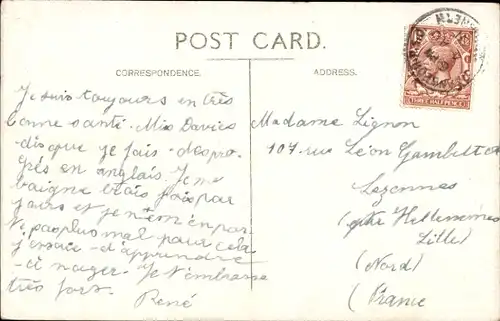 POST CARD.
CORRESPONDENCE.
ADDRESS.
THREE HALFPENCE
Je suis toujours en très
bonne santé. Miss Davies
dis que je fais des pro-
grès en anglais. Je me
baigne trois fois par
jours et je n'en
pas plus mal pour cela
j'essaie d'apprendre
à nager. Je t'embrasse
très fort.
René
Madame Lignon
107 rue Léon Gambetta
Lezennes
(près Hellemmes
Lille)
(Nord)
(France